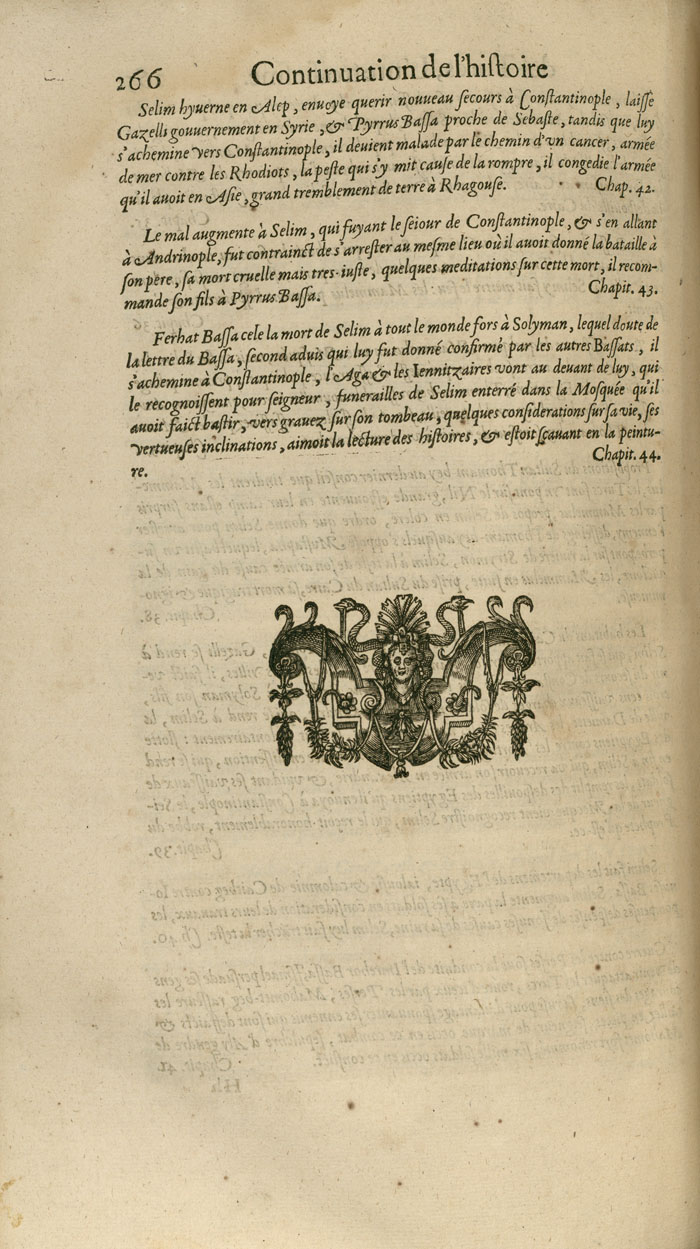 266 Continuation de l'histoire
Selim hyuerne en Alep, enuoye querir nouueau secours à Constantinople, laisse
Gazelli gouuernement en Syrie, & Pyrrus Bassa proche de Sebaste, tandis que luy
s'achemine vers Constantinople, il deuient malade par le chemin d'vn cancer, armée
de mer contre les Rhodiots, la peste qui s'y mit cause de la rompre, il congedie l'armée
qu'il auoit en Asie, grand tremblement de terre à Rhagouse. Chap. 42.
Le mal augmente à Selim, qui fuyant le seiour de Constantinople, & s'en allant
à Andrinople, fut contrainct de s'arrester au mesme lieu où il auoit donné la bataille à
son pere, sa mort cruelle mais tres-iuste, quelques meditations sur cette mort, il recom-
mande son fils à Pyrrus Bassa. Chapit. 43.
Ferhat Bassa cele la mort de Selim à tout le monde fors à Solyman, lequel doute de
la lettre du Bassa, second aduis qui luy fut donné confirmé par les autres Bassats, il
s'achemine à Constantinople, l'Aga & les Iennitzaires vont au deuant de luy, qui
le recognoissent pour seigneur, funerailles de Selim enterré dans la Mosquée qu'il
auoit faict bastir, vers grauez sur son tombeau, quelques considerations sur sa vie, ses
vertueuses inclinations, aimoit la lecture des histoires, & estoit sçauant en la peintu-
re. Chapit. 44.